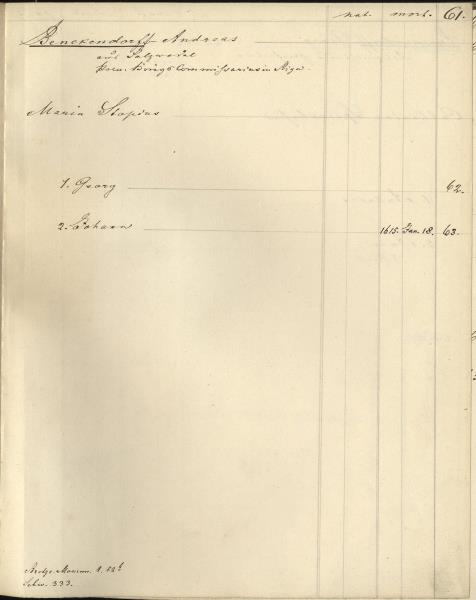 nat. mort. 61.
Benckendorff Andreas
aus Salzwedel
Commissarius in Riga
Maria Stopius
1. Georg 62.
2. Johann 1615. Jan. 18. 63.
Schw. 333.